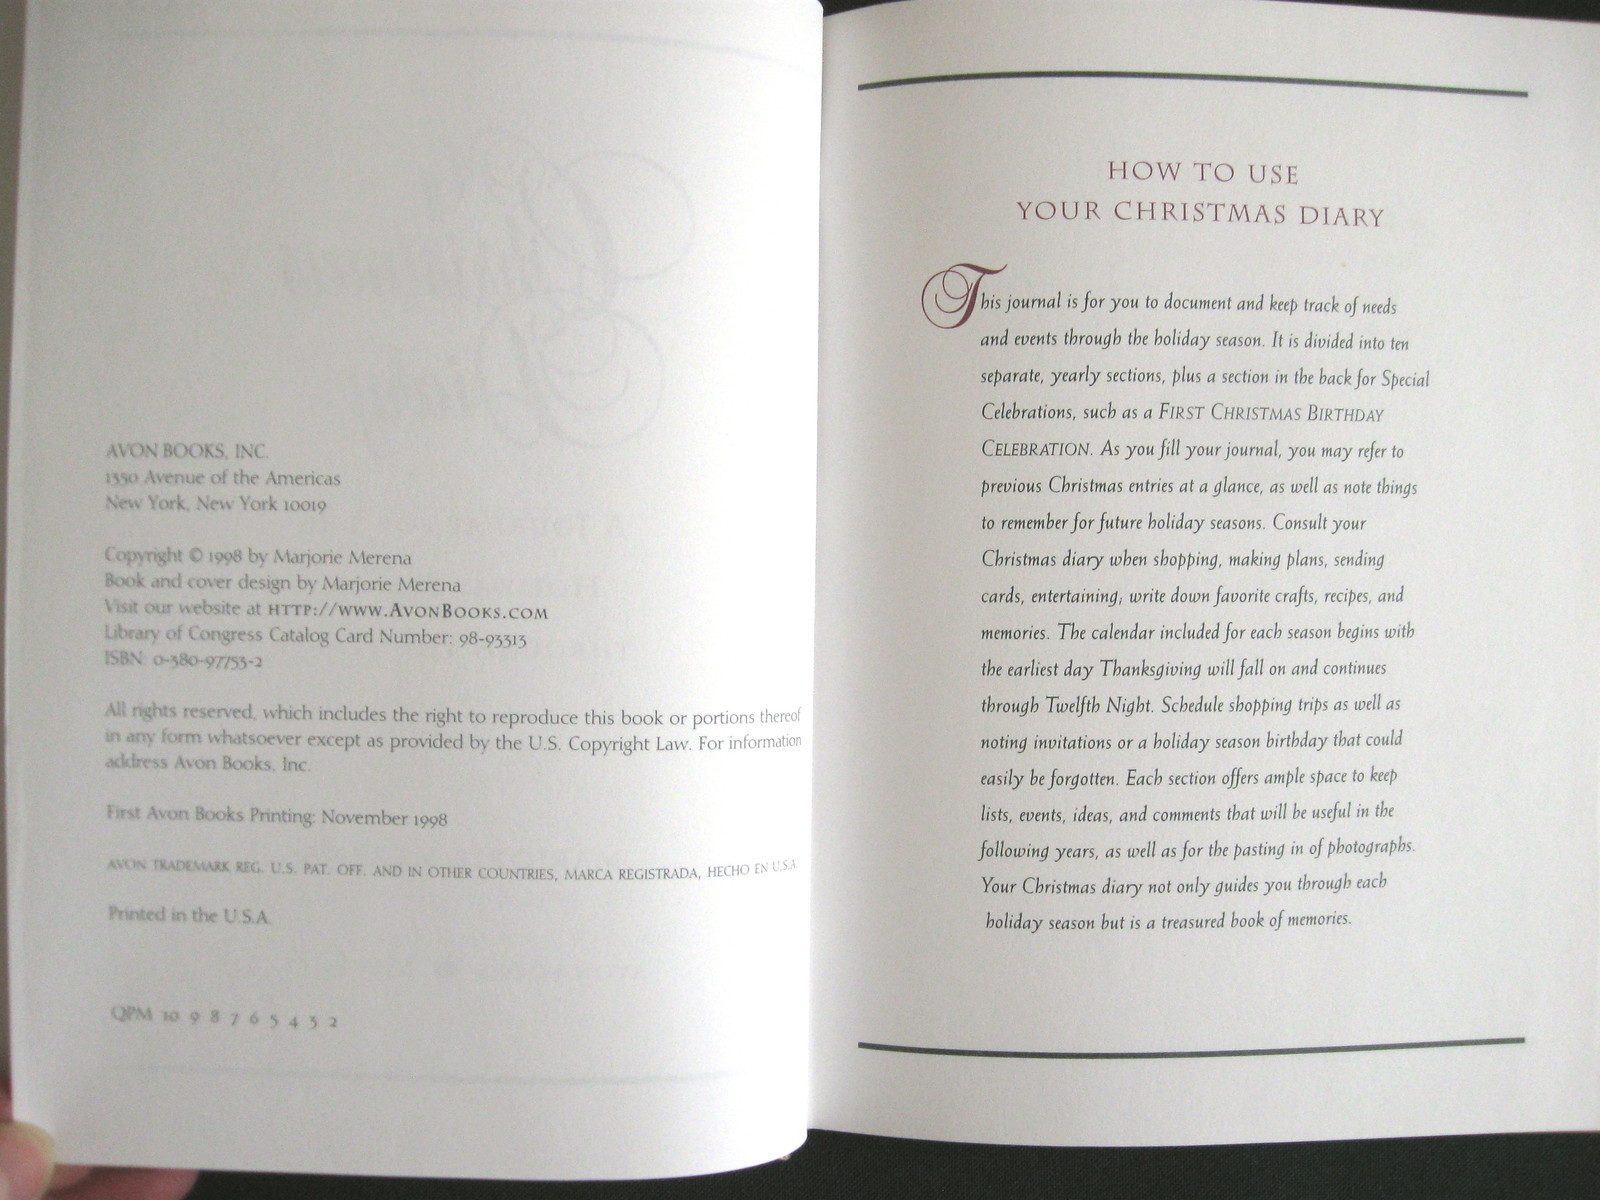 AVON BOOKS, INC.
1350 Avenue of the Americas
New York, New York 10019
Copyright © 1998 by Marjorie Merena
Book and cover design by Marjorie Merena
Visit our website at HTTP://WWW.AVONBOOKS.COM
Library of Congress Catalog Card Number: 98-93313
ISBN: 0-380-97753-2
All rights reserved, which includes the right to reproduce this book or portions thereof
in any form whatsoever except as provided by the U.S. Copyright Law. For information
address Avon Books, Inc.
First Avon Books Printing: November 1998
AVON TRADEMARK REG. U.S. PAT. OFF. AND IN OTHER COUNTRIES, MARCA REGISTRADA, HECHO EN U.S.A.
Printed in the U.S.A.
QPM 10 9 8 7 6 5 4 3 2
HOW TO USE
YOUR CHRISTMAS DIARY
This journal is for you to document and keep track of needs
and events through the holiday season. It is divided into ten
separate, yearly sections, plus a section in the back for Special
Celebrations, such as a FIRST CHRISTMAS BIRTHDAY
CELEBRATION. As you fill your journal, you may refer to
previous Christmas entries at a glance, as well as note things
to remember for future holiday seasons. Consult your
Christmas diary when shopping, making plans, sending
cards, entertaining; write down favorite crafts, recipes, and
memories. The calendar included for each season begins with
the earliest day Thanksgiving will fall on and continues
through Twelfth Night. Schedule shopping trips as well as
noting invitations or a holiday season birthday that could
easily be forgotten. Each section offers ample space to keep
lists, events, ideas, and comments that will be useful in the
following years, as well as for the pasting in of photographs.
Your Christmas diary not only guides you through each
holiday season but is a treasured book of memories.